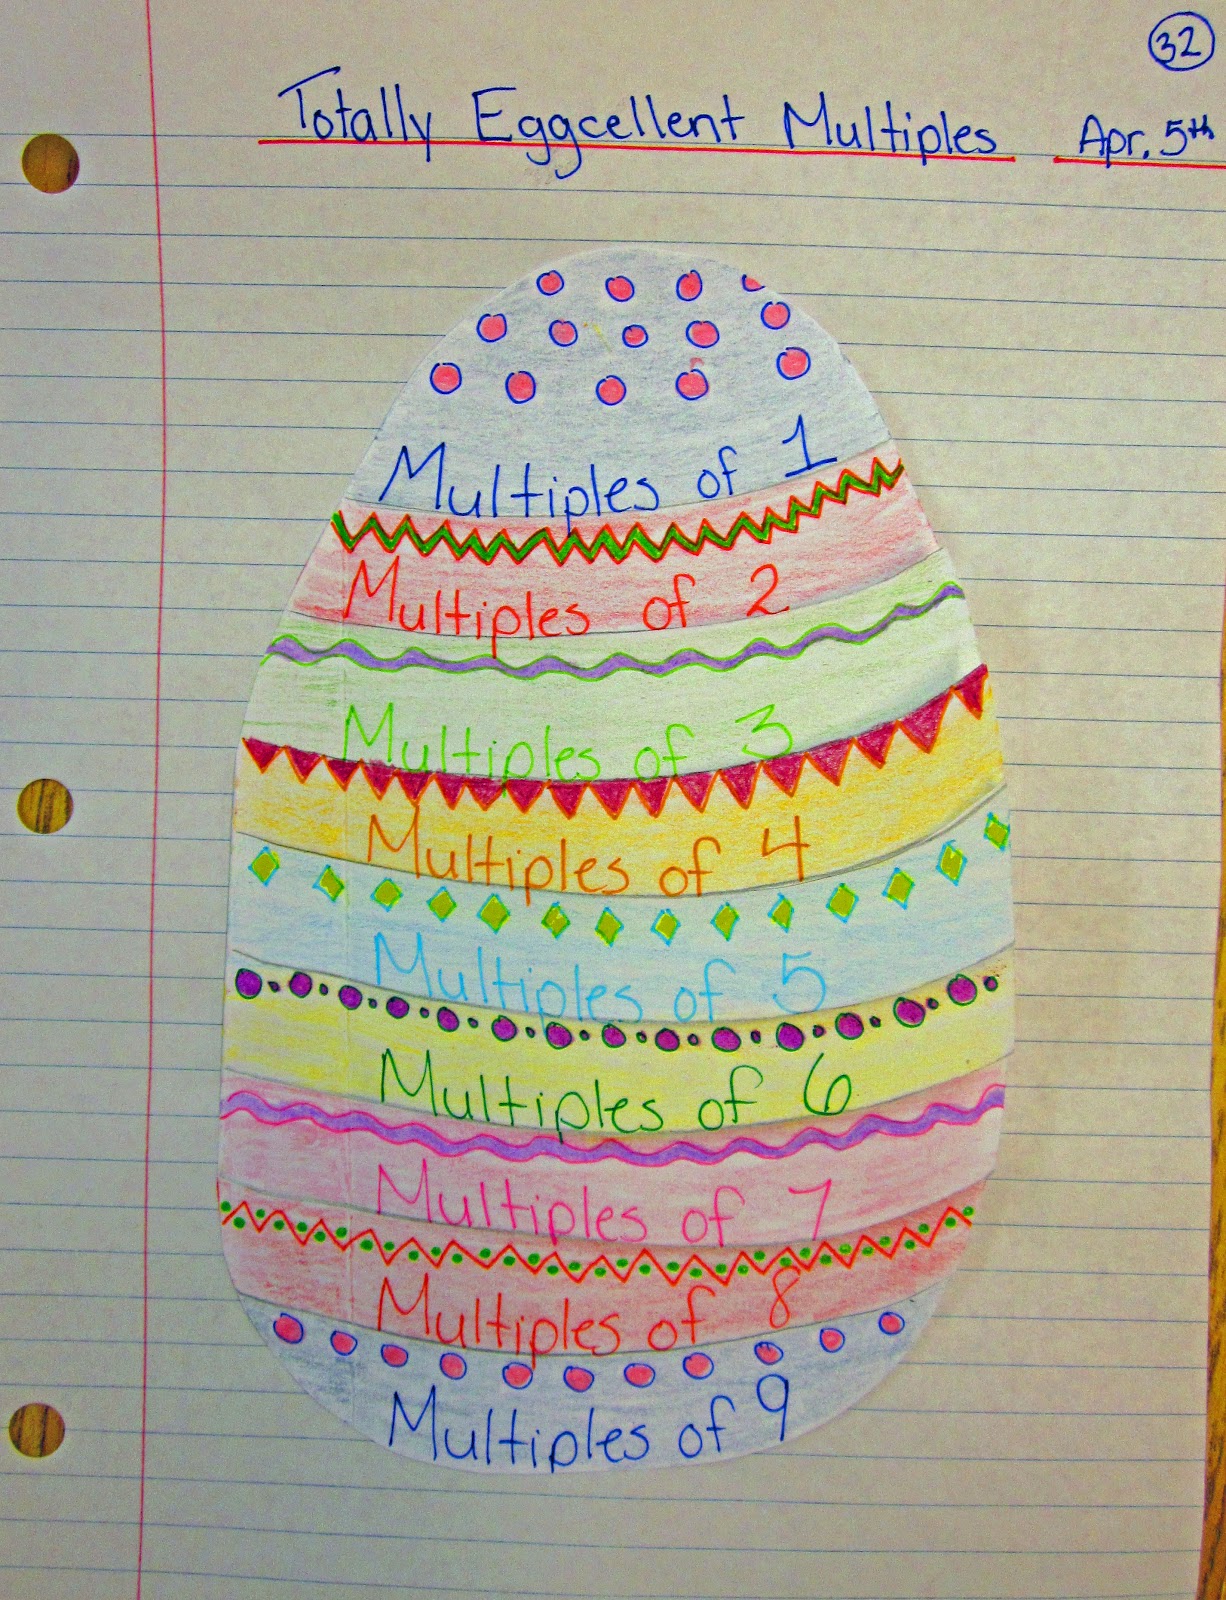 32
Totally Eggcellent Multiples Apr. 5th
Multiples of 1
Multiples of 2
Multiples of 3
Multiples of 4
Multiples of 5
Multiples of 6
Multiples of 7
Multiples of 8
Multiples of 9